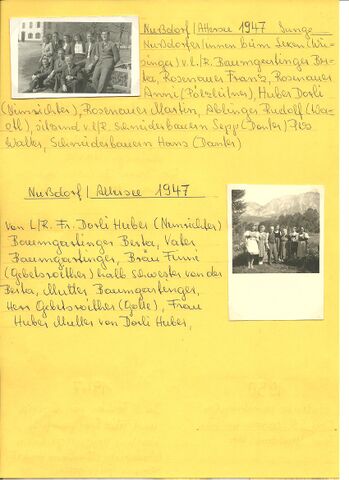 Nußdorf/Attersee 1947 Junge
Nußdorfer/innen beim Lexen (Wie-
singer) v.l./R. Baumgartinger Ber-
ta, Rosenauer Franz, Rosenauer
Anni (Pölzleitner), Huber Dorli
(Nunsichter), Rosenauer Martin, Ablinger Rudolf (Wa-
stl), sitzend v.l/R. Schneiderbauern Sepp (Danter)
Walter, Schneiderbauern Hans (Danter)
Nußdorf/Attersee 1947
von L/R. Fr. Dorli Huber (Nunsichter)
Baumgartinger Berta, Vater
Baumgartinger, Bräu Finne
(Gebetsroither) halb Schwester von der
Berta, Mutter Baumgartinger,
Herr Gebetsroither (Gotte), Frau
Huber Mutter von Dorli Huber,